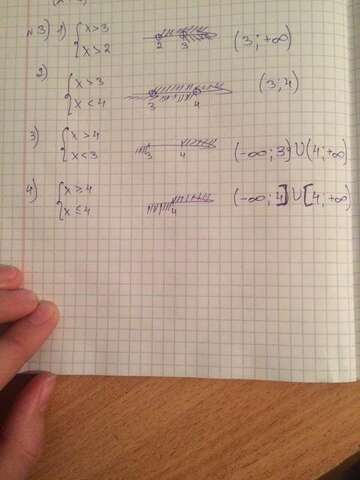 №3) 1) { x>3 x>2 2 3 (3; +∞)
2) { x>3 x<4 3 4 (3; 4)
3) { x>4 x<3 3 4 (-∞; 3) ∪ (4; +∞)
4) { x≥4 x≤4 4 (-∞; 4] ∪ [4; +∞)